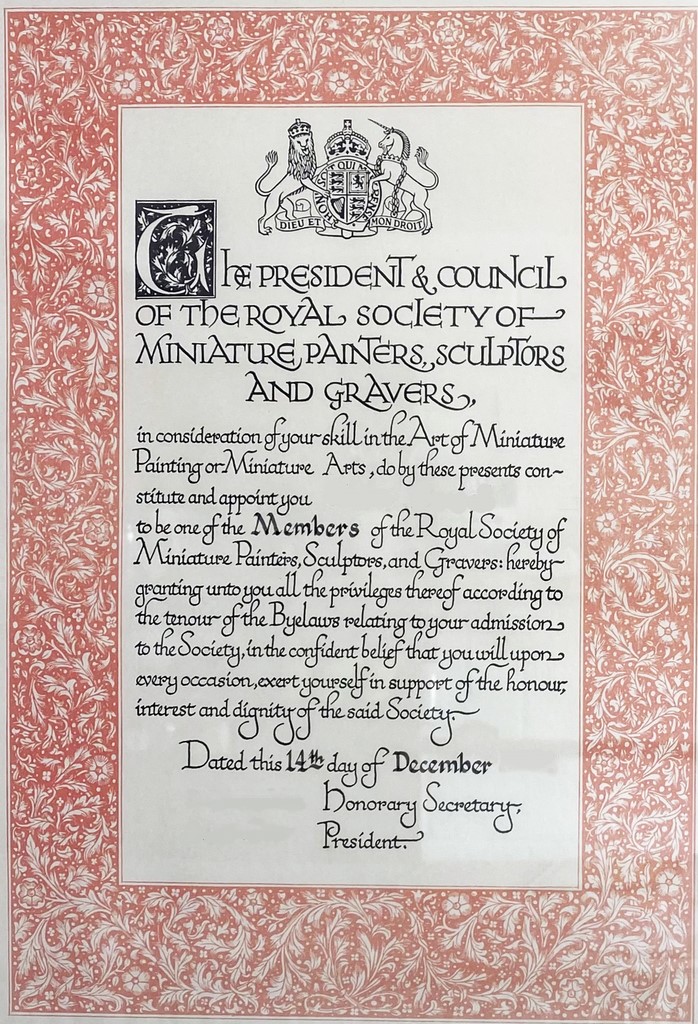 HONI SOIT QUI MAL Y PENSE
DIEU ET MON DROIT
THE PRESIDENT & COUNCIL
OF THE ROYAL SOCIETY OF
MINIATURE PAINTERS, SCULPTORS
AND GRAVERS,
in consideration of your skill in the Art of Miniature
Painting or Miniature Arts, do by these presents con-
stitute and appoint you
to be one of the Members of the Royal Society of
Miniature Painters, Sculptors, and Gravers: hereby
granting unto you all the privileges thereof according to
the tenour of the Byelaws relating to your admission
to the Society, in the confident belief that you will upon
every occasion, exert yourself in support of the honour,
interest and dignity of the said Society.
Dated this 14th day of December
Honorary Secretary,
President.